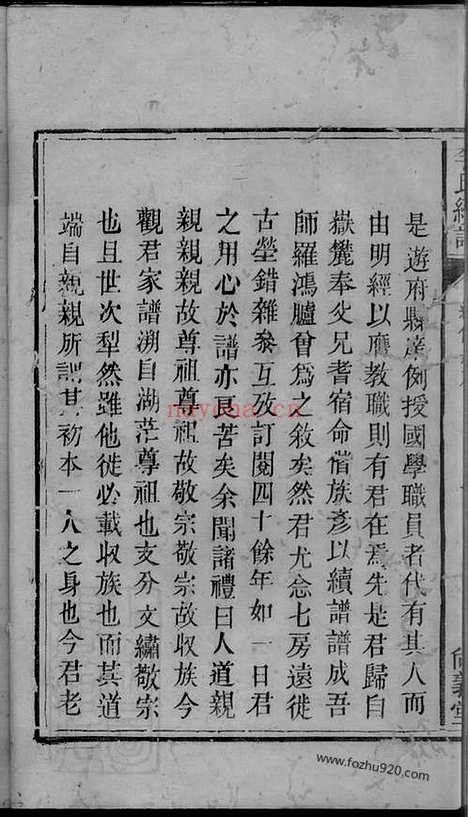 是遊府縣庠例授國學職員者代有其人而
由明經以應教職則有君在焉先是君歸自
嶽麓奉父兄耆宿命偕族彥以續譜譜成吾
師羅鴻臚曾為之敘矣然君尤念七房遠徙
古塋錯雜叅互攷訂閱四十餘年如一日君
之用心於譜亦良苦矣余聞諸禮曰人道親
親親親故尊祖尊祖故敬宗敬宗故收族今
觀君家譜溯自湖茫尊祖也支分文繡敬宗
也且世次犁然雖他徙必載收族也而其道
端自親親所謂其初本一人之身也今君老
尚義堂
nayona.cn
www.fozhu920.com